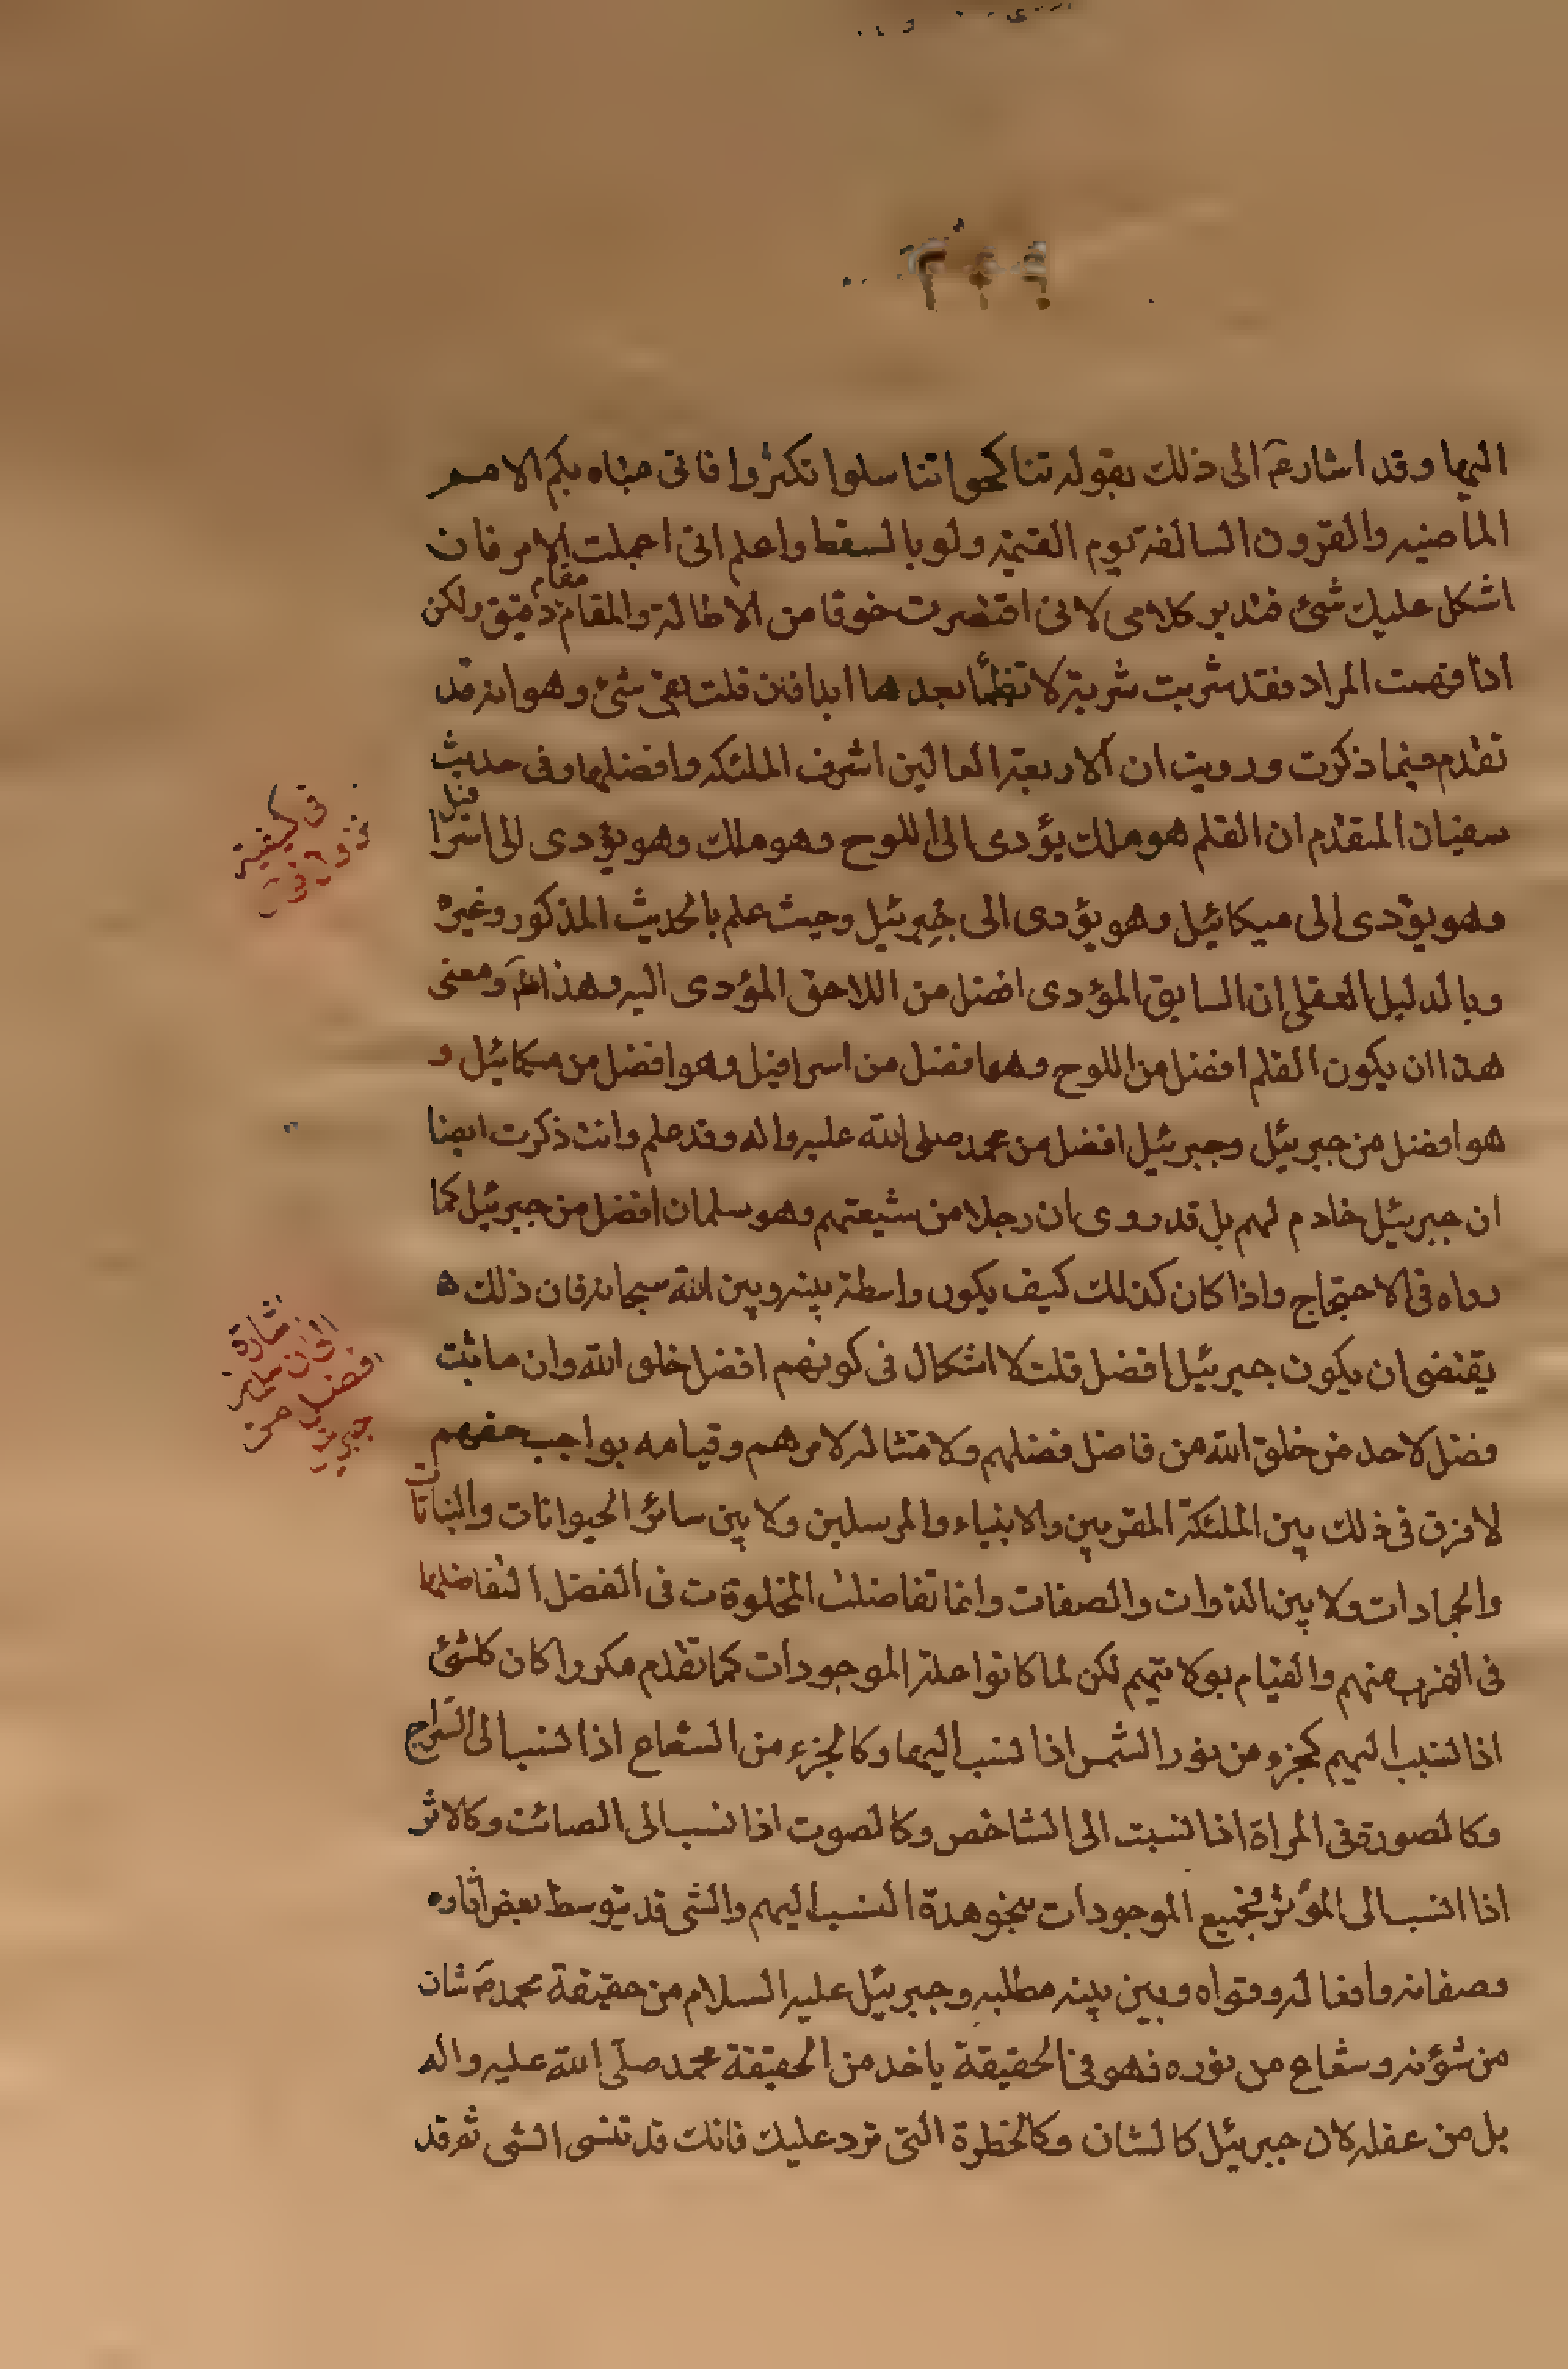 اليها وقد اشار عم الى ذلك بقوله تناكحوا تناسلوا تكثروا فانى مباه بكم الامم
الماضيه والقرون السالفة يوم القيمة ولو بالسقط واعلم انى اجملت الامر فان
مقام
اشكل عليك شئ فتدبر كلامى لانى اقتصرت خوفا من الاطالة والمقام دقيق ولكن
اذا فهمت المراد فقد شربت شربة لا تظمأ بعدها ابدا فان قلت بقى شئ وهو انه قد
تقدم فيما ذكرت ورويت ان الاربعة العالين اشرف الملئكه وافضلها وفى حديث
سفيان المتقدم ان القلم هو ملك يؤدى الى اللوح وهو ملك وهو يؤدى الى اسرا
فيل
وهو يؤدى الى ميكائيل وهو يؤدى الى جبرئيل وحيث علم بالحديث المذكور وغيره
وبالدليل العقلى ان السابق المؤدى افضل من اللاحق المؤدى اليه وهذا ومعنى
هذا ان يكون القلم افضل من اللوح وهو افضل من اسرافيل وهو افضل من ميكائيل و
هو افضل من جبرئيل وجبرئيل افضل من محمد صلى الله عليه واله وقد علم وانت ذكرت ايضا
ان جبرئيل خادم لهم بل قد روى ان رجلا من شيعتهم وهو سلمان افضل من جبرئيل كما
رواه فى الاحتجاج واذا كان كذلك كيف يكون واسطة بينه وبين الله سبحانه فان ذلك
يقتضى ان يكون جبرئيل افضل قلت لا اشكال فى كونهم افضل خلق الله وان ما ثبت
فضل لاحد من خلق الله من فاضل فضلهم ولامتثاله لامرهم وقيامه بواجب حقهم
لا فرق فى ذلك بين الملئكة المقربين والانبياء والمرسلين ولا بين سائر الحيوانات والنباتات
والجمادات ولا بين الذوات والصفات وانما تفاضلت المخلوقات فى الفضل لتفاضلها
فى القرب منهم والقيام بولايتهم لكن لما كانوا علة الموجودات كما تقدم مكررا كان كلشئ
اذا نسب اليهم كجزء من نور الشمس اذا نسب اليها وكالجزء من الشعاع اذا نسب الى السراج
وكالصورة فى المراة اذا نسبت الى الشاخص وكالصوت اذا نسب الى الصائت وكالاثر
اذا انسب الى المؤثر فجميع الموجودات بنحو هذة النسب اليهم والشى قد يتوسط بعض اثاره
وصفاته وافعاله وقواه وبين بينه مطلبه وجبرئيل عليه السلام من حقيقة محمد ص شان
من شؤنه وشعاع من نوره فهو فى الحقيقة ياخذ من الحقيقة محمد صلى الله عليه واله
بل من عقله لان جبرئيل كالشان وكالخطرة التى ترد عليك فانك قد تنسى الشى ثم قد
فى كيفية
اشارة
الى ان سلمان
افضل من
جبرئيل